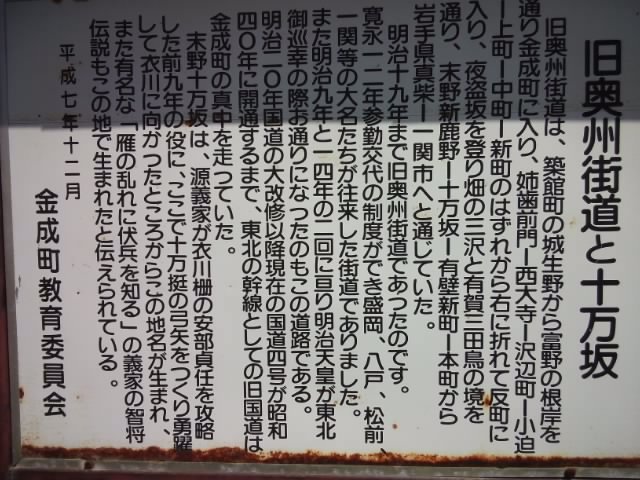 旧奥州街道と十万坂
旧奥州街道は、築館町の城生野から富野の根岸を
通り金成町に入り、姉歯前門ー西大寺ー沢辺町ー小迫
ー上町ー中町ー新町のはずれから右に折れて反町に
入り、夜盗坂を登り畑の三沢と有賀三田鳥の境を
通り、末野新鹿野ー十万坂ー有壁新町ー本町から
岩手県真柴ー一関市へと通じていた。
明治十九年まで旧奥州街道であったのです。
寛永一二年参勤交代の制度ができ盛岡、八戸、松前、
一関等の大名たちが往来した街道でありました。
また明治九年と一四年の二回に亘り明治天皇が東北
御巡幸の際お通りになったのもこの道路である。
明治二〇年国道の大改修以降現在の国道四号が昭和
四〇年に開通するまで、東北の幹線としての旧国道は
金成町の真中を走っていた。
末野十万坂は、源義家が衣川柵の安部貞任を攻略
した前九年の役に、ここで十万挺の弓矢をつくり勇躍
して衣川に向かったところからこの地名が生まれ、
また有名な「雁の乱れに伏兵を知る」の義家の智将
伝説もこの地で生まれたと伝えられている。
平成七年十二月
金成町教育委員会